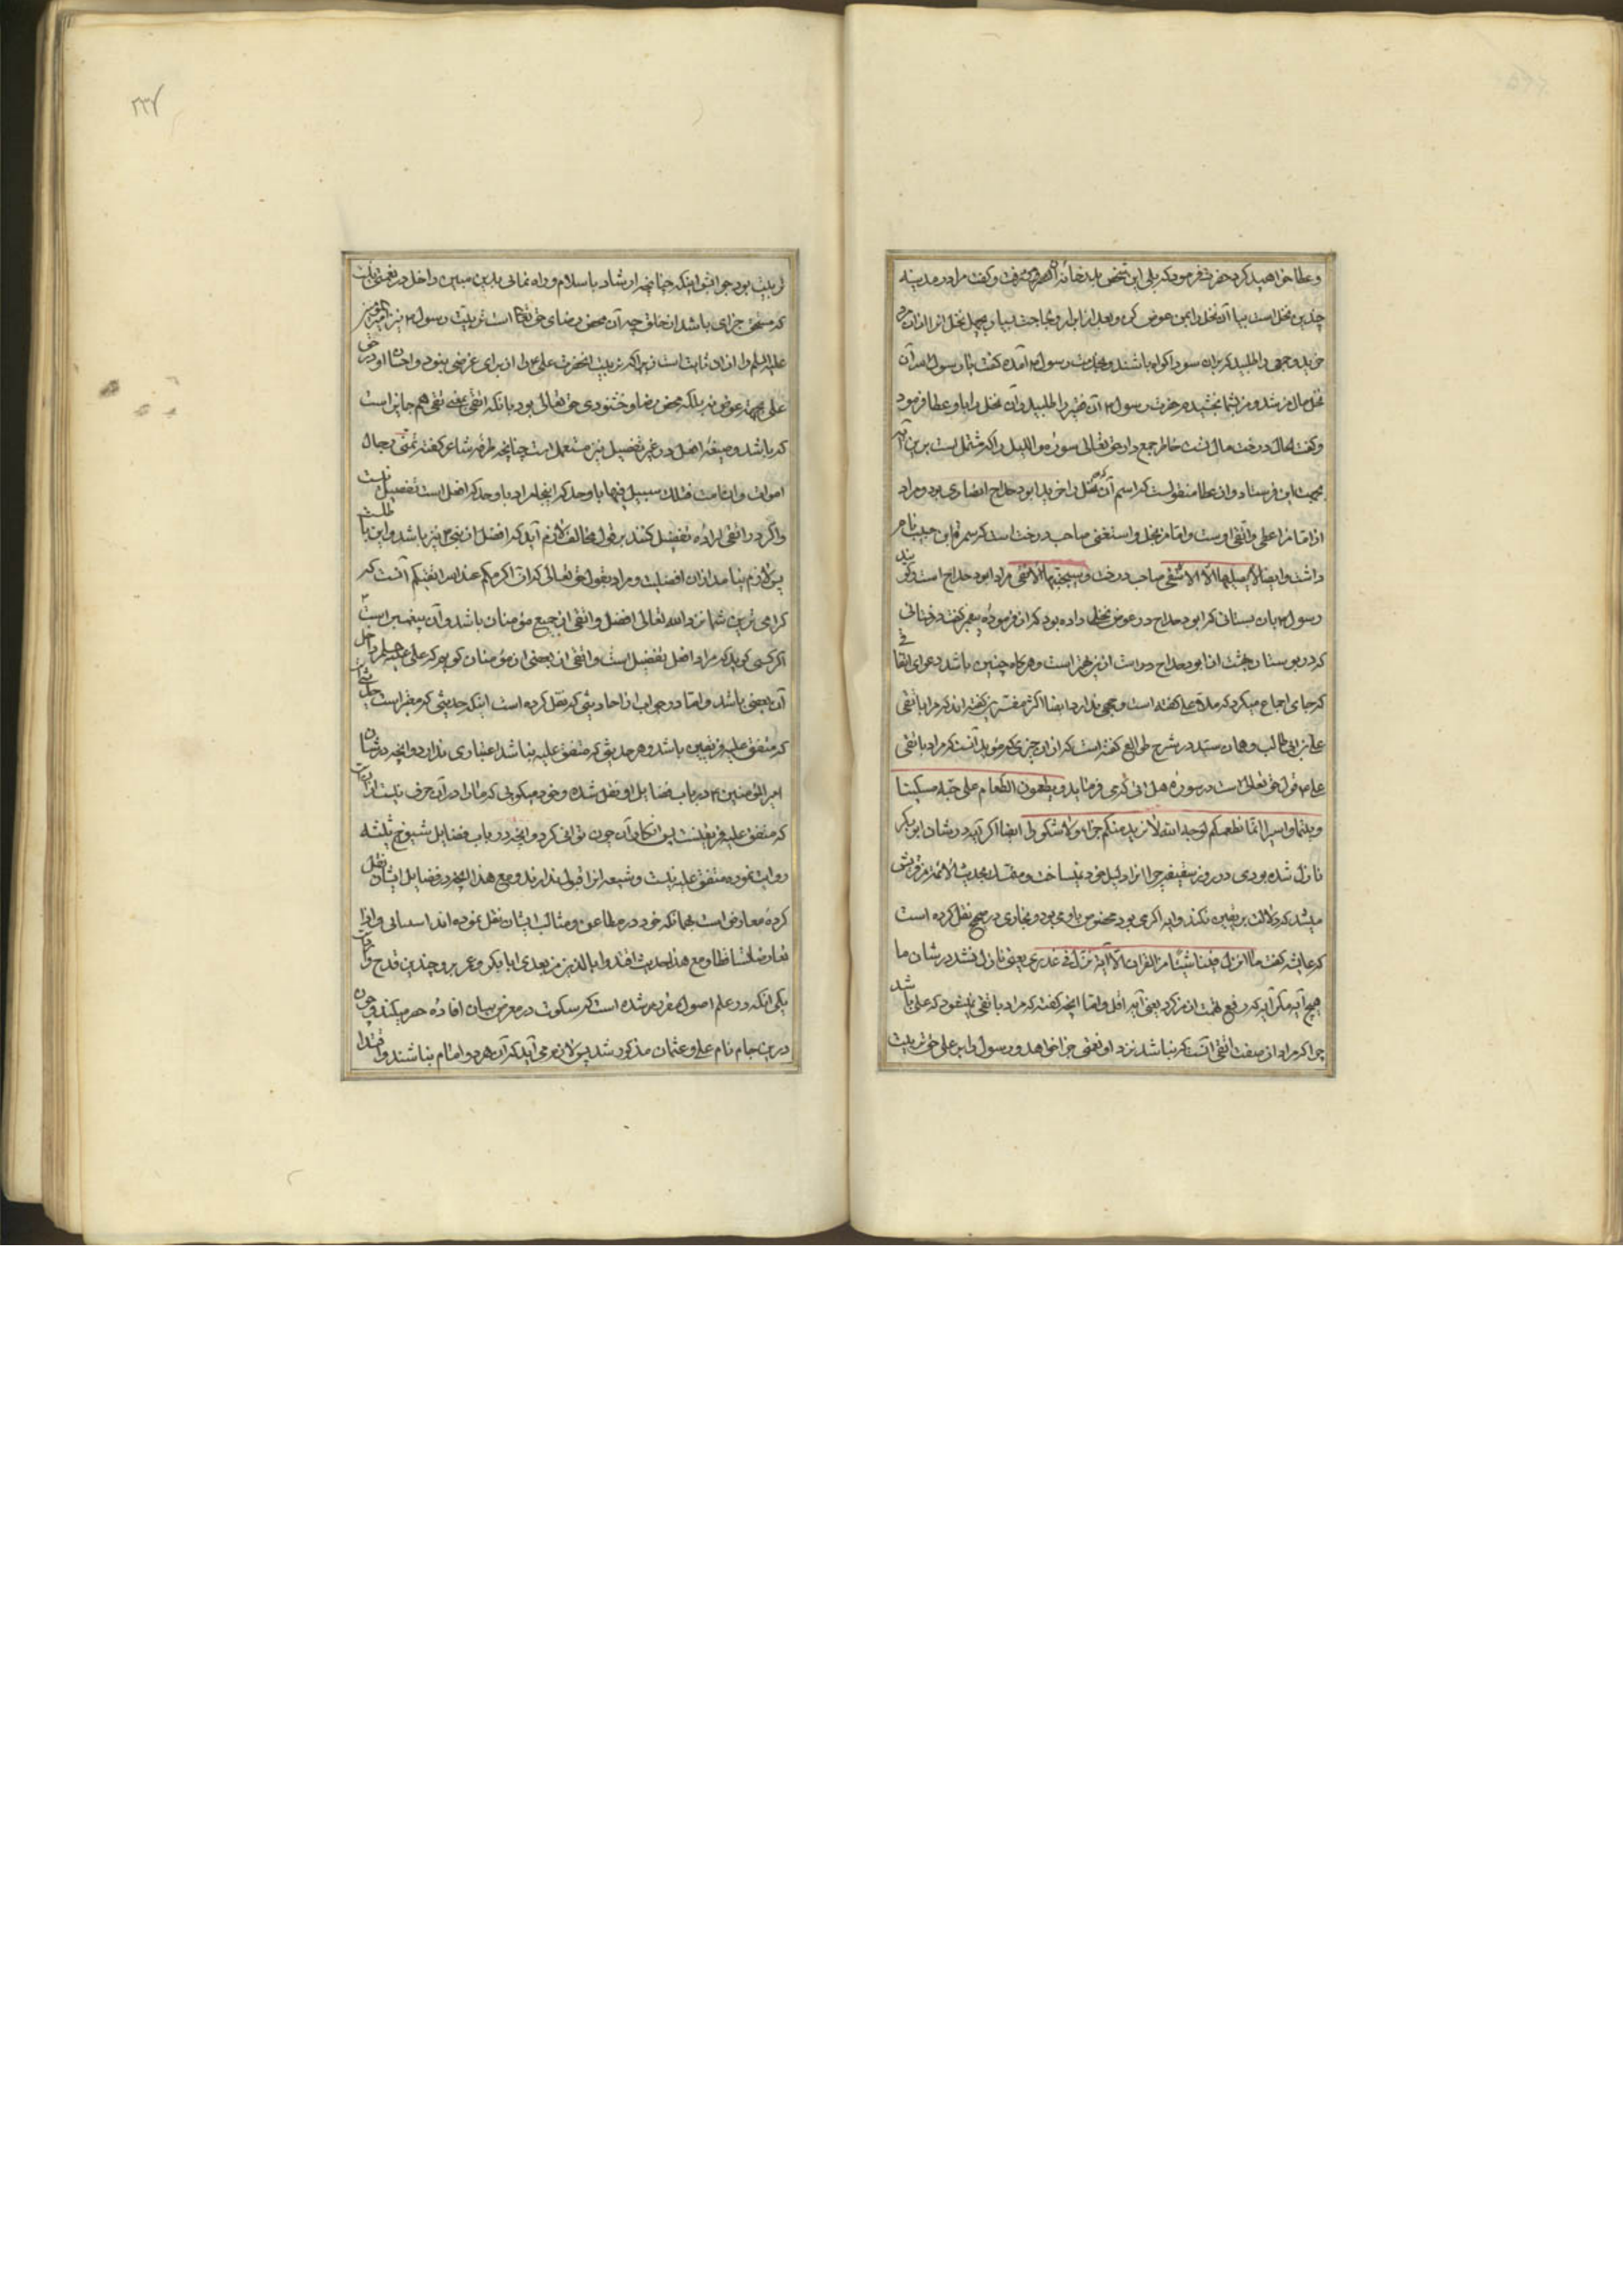 و عطا خواهید کرد حضرت فرمود که بلی این شخص بدر خانه رفت و گفت مرا در مدینه
چندین نخل است بیا آن نخل را بمن عوض کن و بعد از ابرار و بچهل نخل
خرید و جمعی را طلبید که بران سودا گواه باشند و بخدمت رسول آمده گفت یا رسول الله آن
نخل مال من شد و من بشما بخشیدم حضرت رسول آن فقیر را طلبید و آن نخل را باو عطا فرمود
و گفت الحال درخت مال تست خاطر جمع دار و حق تعالی سوره واللیل را که مشتمل است برین آیه
بجهت این فرستاد و از عطا منقولست که اسم آن که نخل را خرید ابو دحداح انصاری بود و مراد
از اما من اعطی و اتقی اوست و اما من بخل و استغنی صاحب درخت است که سمره ابن حبیب نام
داشت و ایضا لا یصلیها الا الاشقی صاحب درخت و سیجنبها الاتقی مراد ابو دحداح است و گویند
رسول بان بستانی که ابو دحداح در عوض نخل داده بود گفت
که در بوستان بهشت از ابو دحداح درختی از بهتر است و هر گاه چنین باشد دعوای اتقا
که جای اجماع میکرد که ملا علی گفته است وجهی ندارد ایضا اکثر مفسرین گفته اند که مراد باتقی
علی بن ابی طالب و همان سید در شرح طوالع گفته است که از آن چیزی که مؤید آنست که مراد باتقی
علی قول حق تعالی است در سوره هل اتی که می فرماید و یطعمون الطعام علی حبه مسکینا
و یتیما و اسیرا انما نطعمکم لوجه الله لا نرید منکم جزاء و لا شکورا ایضا اگر آیه در شان ابو بکر
نازل شده بودی در روز سقیفه چرا آنرا دلیل خود نمیساخت و متمسک بحدیث الائمة من قریش
میشد که دلالت بر یقین نکند و این اگر می بود مخصوص باو می بود و بخاری در صحیح نقل کرده است
که عایشه گفت ما انزل فینا شیئا من القران الا آیة نزل فی عذری یعنی نازل نشد در شان ما
هیچ آیه مگر آیه که رفع تهمت از من کرد یعنی آیه افک و اما آنچه گفته که مراد باتقی نمیشود که علی باشد
چرا که مراد از صفت اتقی آنست که نباشد نزد او نعمتی جزا خواهد و رسول را بر علی حق تربیت
تربیت بود جوابش اینکه چنانچه ارشاد باسلام و راه نمائی بدین مبین داخل در نعمتی نیست
که مستحق جزای باشد از خلق چه آن محض رضای حق تعالی است تربیت رسول نیز امیر المؤمنین
علیه السلم را از آن ثابت است زیرا که تربیت آنحضرت علی را از برای غرضی نبود و احسان او در حق
علی بجهة عوض نه بلکه محض رضا و خشنودی حق تعالی بود با آنکه اتقی بمعنی تقی هم جایز است
که باشد و صیغه افعل در غیر تفضیل نیز مستعمل است چنانچه طرفه شاعر گفته تمنی رجال
اموات و ان امت فتلک سبیل فیها باوحد که اینجا مراد باوحد که افعل است تفضیل نیست
و اگر در اتقی اراده تفضیل کنند بر قول مخالف لازم آید که افضل از نبی نیز باشد و این باطلست
پس لازم نیامد از آن افضلیت و مراد بقول حق تعالی که ان اکرمکم عند الله اتقیکم آنست که
گرامی ترین شما نزد الله تعالی افضل و اتقی از جمیع مؤمنان باشد و آن پیغمبر است
اگر کسی گوید که مراد افعل تفضیل است و اتقی از بعضی از مؤمنان گوییم که علی علیه السلم داخل
آن بعض باشد و اما دو جواب از احادیثی که نقل کرده است اینکه حدیثی که معتبر است
که متفق علیه فریقین باشد و هر حدیثی که متفق علیه نباشد اعتباری ندارد و آنچه در شان
امیر المؤمنین در باب فضایل او نقل شده و خود میگویی که ما را در آن حرف نیست
که متفق علیه فریقینست پس انکار آن چون توانی کرد و آنچه در باب فضایل شیوخ ثلثه
روایت نموده متفق علیه نیست و شیعه آنرا قبول ندارند و مع هذا آنچه در فضایل ایشان نقل
کرده معارض است بهمانکه خود در مطاعن و مثالب ایشان نقل نموده اند
تعارضا تساقطا و مع هذا حدیث اقتدوا بالذین من بعدی ابا بکر و عمر برو چندین قدح
یکی آنکه در علم اصول مقرر شده است که سکوت در معرض بیان افاده حصر میکند و چون
درین مقام نام علی و عثمان مذکور نشد پس لازم می آید که آن هر دو امام نباشند و اقتدا